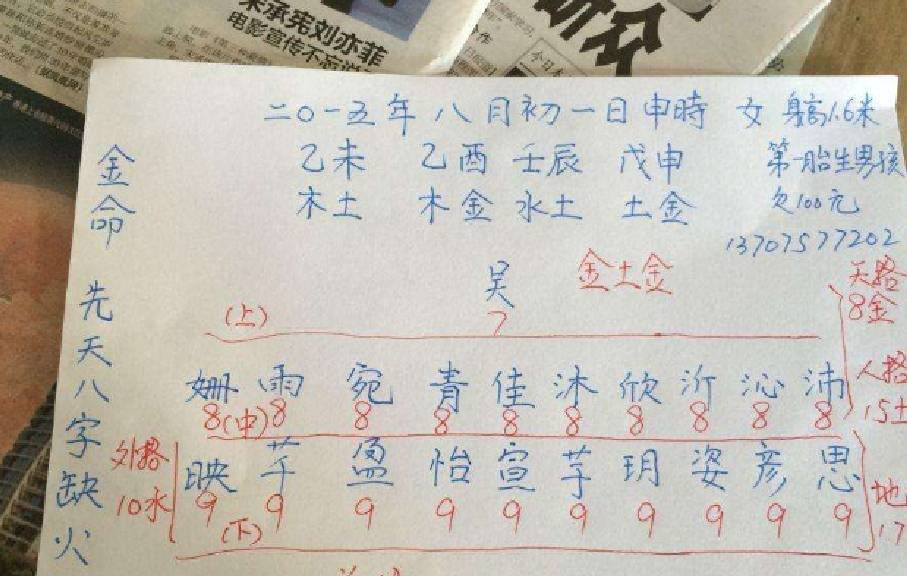 宋承宪刘亦菲
电影宣传不忘
二〇一五年 八月初一日申時 女 身高1.6米
乙未 乙酉 壬辰 戊申 第一胎生男孩
木土 木金 水土 土金 欠100元
13707577202
金命 先天八字缺火
吴 金土金
7
(上)
天格
8金
姗 雨 宛 青 佳 沐 欣 沂 沁 沛
8 (中) 8 8 8 8 8 8 8 8 8
人格
15土
外格
10水
映 芊 盈 怡 宣 芋 玥 姿 彦 思
9 9 9 9 9 9 9 9 9 9
(下)
地
17